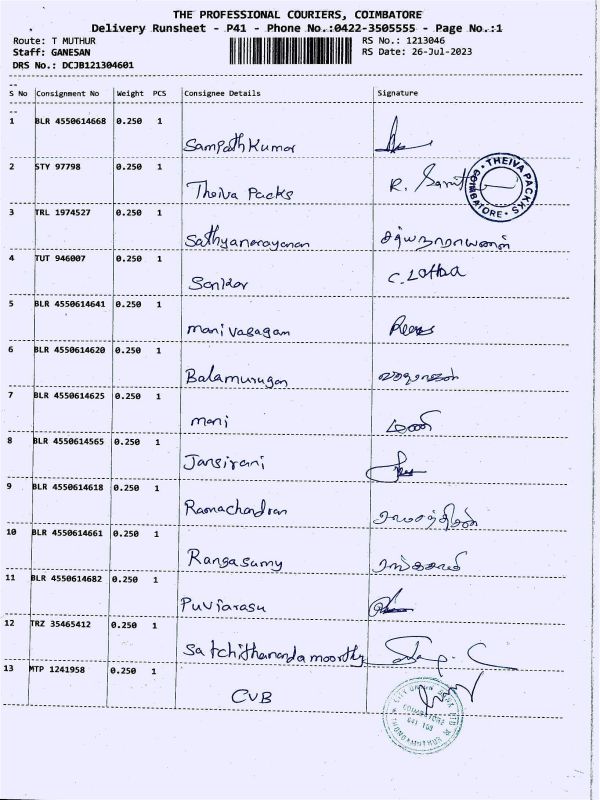 THE PROFESSIONAL COURIERS, COIMBATORE
Delivery Runsheet - P41 - Phone No.:0422-3505555 - Page No.:1
Route: T MUTHUR RS No.: 1213046
Staff: GANESAN RS Date: 26-Jul-2023
DRS No.: DCJB121304601
S No Consignment No Weight PCS Consignee Details Signature
1 BLR 4550614668 0.250 1
Sampath Kumar
2 STY 97798 0.250 1
Theiva Packs R.
THEIVA PACKKS COIMBATORE
3 TRL 1974527 0.250 1
Sathyanarayanan சத்யநாராயணன்
4 TUT 946007 0.250 1
C. Latha
5 BLR 4550614641 0.250 1
manivasagan
6 BLR 4550614620 0.250 1
Balamurugan
7 BLR 4550614625 0.250 1
mani மணி
8 BLR 4550614565 0.250 1
Jansirani
9 BLR 4550614618 0.250 1
Ramachandran ராமசந்திரன்
10 BLR 4550614661 0.250 1
Rangasamy ரங்கசாமி
11 BLR 4550614682 0.250 1
Puviarasu
12 TRZ 35465412 0.250 1
Satchithanandamoorthy
13 MTP 1241958 0.250 1
CUB
CITY UNION BANK LTD
COIMBATORE
641 109
THONDAMUTHUR